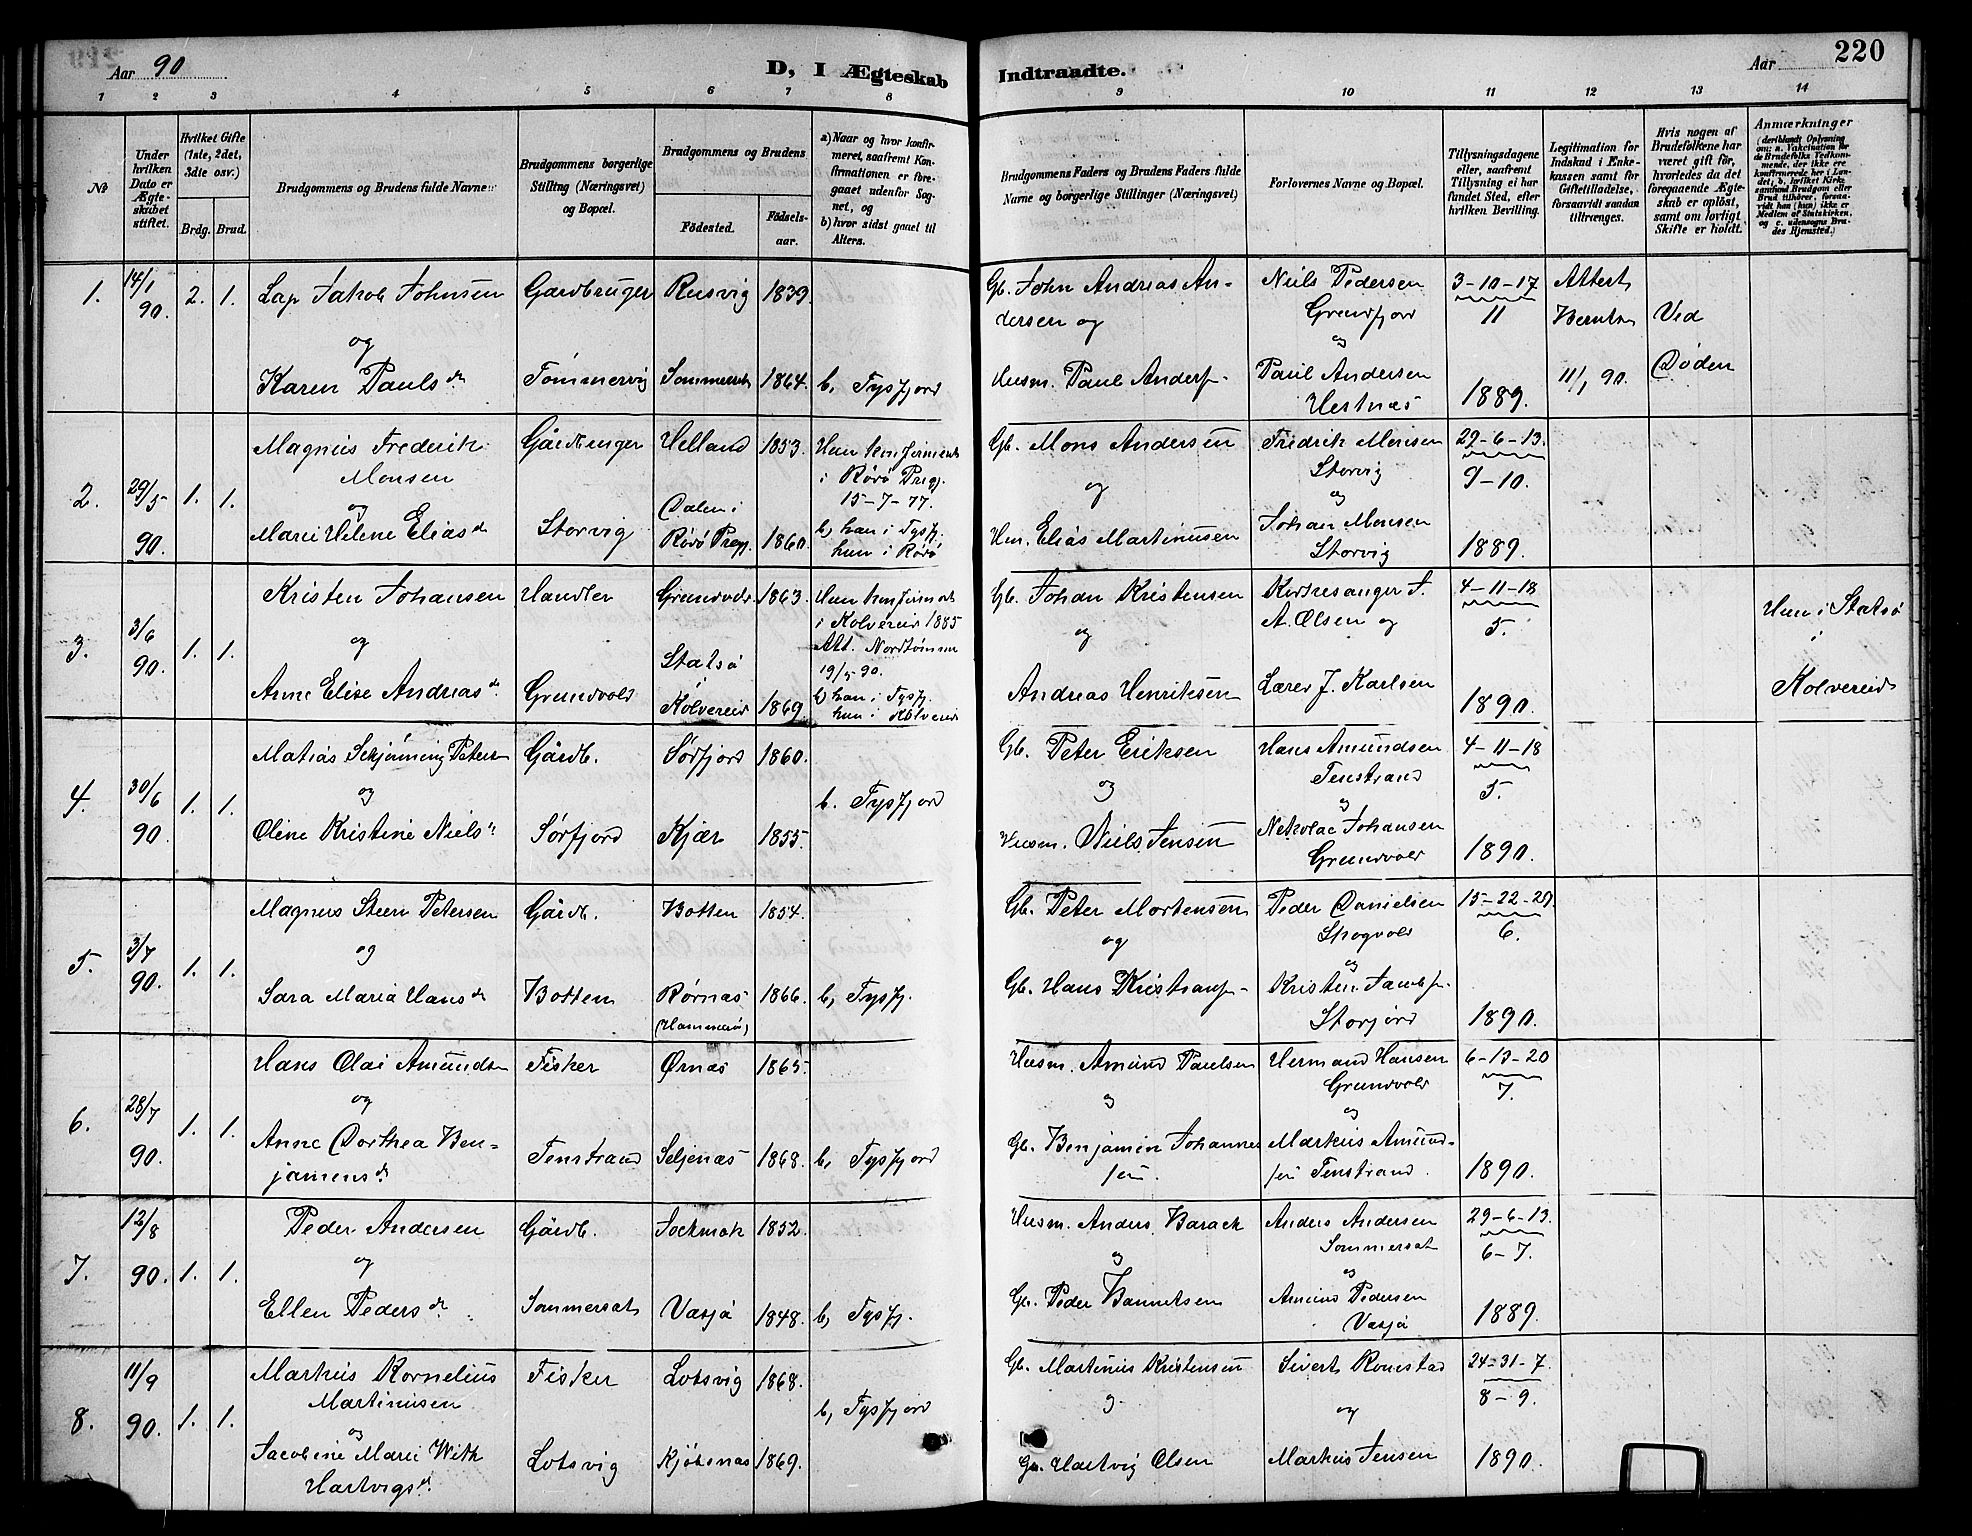 Aar 90
D, I Ægteskab
Indtraadte.
Aar
220
1 2 3 4 5 6 7 8 9 10 11 12 13 14
No
Under
hvilken
Dato er
Ægte-
skabet
stiftet.
Hvilket Gifte
(1ste, 2det,
3die osv.)
Brdg. Brud.
Brudgommens og Brudens fulde Navne.
Brudgommens borgerlige
Stilling (Næringsvei)
og Bopæl.
Brudgommens og Brudens
Fødested.
Fødsels-
aar.
a) Naar og hvor konfir-
meret, saafremt Kon-
firmationen er fore-
gaaet udenfor Sog-
net, og
b) hvor sidst gaaet til
Alters.
Brudgommens Faders og Brudens Faders fulde
Navne og borgerlige Stillinger (Næringsvei)
Forlovernes Navne og Bopæl.
Tillysningsdagene
eller, saafremt
Tillysning ei har
fundet Sted, efter
hvilken Bevilling.
Legitimation for
Indskud i Enke-
kassen samt for
Giftetilladelse,
forsaavidt saadan
tiltrænges.
Hvis nogen af
Brudefolkene har
været gift før,
hvorledes da det
foregaaende Ægte-
skab er opløst,
samt om lovligt
Skifte er holdt.
Anmærkninger
(deriblandt Oplysning
om: a. Vakcination for
de Brudefolks Vedkom-
mende, der ikke ere
konfirmerede her i Lan-
det; b. hvilket Kirke
samfund Brudgom eller
Brud tilhører, forsaa-
vidt han (hun) ikke er
Medlem af Statskirken,
og c. udensogns Bru-
des Hjemsted.)
1. 14/1 90. 2. 1.
Lap Jakob Johnsen
og
Karen Pauls dr
Gardbruger
Tømmervig
Rusvig 1839.
Sommerset 1864.
b, Tysfjord
Gb. John Andreas An-
dersen og
Husm. Paul Anders-
Niels Pedersen
Grundfjord
og
Paul Andersen
Hestnæs
3-10-17
11
1889.
Attest
11/1 90.
Ved
Døden
2. 29/5 90. 1. 1.
Magnus Frederik
Monsen
og
Marie Helene Elias dr
Gårdbruger
Storvig
Helland 1853.
Dalen i
Rødø Preg. 1860.
Hun konfirmeret
i Rødø Prgj.
15-7-77.
b, han i Tysfj.
hun i Rødø
Gb. Mons Andersen
og
Hm. Elias Martinusen
Fredrik Monsen
Storvig
og
Johan Monsen
Storvig
29-6-13.
9-10.
1889.
3. 3/6 90. 1. 1.
Kristen Johansen
og
Anne Elise Andreas dr
Handler
Grundvold
Grundvold 1863.
Statsø
Kolvereid 1869.
Hun konfirmeret
i Kolvereid 1885
Att. Nordtømme
19/5 90.
b) han i Tysfj.
hun i Kolvereid
Gb. Johan Kristensen
og
Andreas Henriksen
Kirkesanger J.
A. Olsen og
Lærer J. Karlsen
4-11-18
5.
1890.
Hun i Statsø
i
Kolvereid
4. 30/6 90. 1. 1.
Matias Schjønning Petersen
og
Oline Kristine Niels dr
Gårdb.
Sørfjord
Sørfjord 1860.
Kjær 1855.
b. Tysfjord
Gb. Peter Eriksen
og
Husm. Niels Jensen
Hans Amundsen
Tenstrand
og
Nikolai Johansen
Grundvold
4-11-18
5.
1890.
5. 3/7 90. 1. 1.
Magnus Steen Petersen
og
Sara Maria Hans dr
Gårdb.
Botten
Botten 1854.
Rørnæs 1866.
(Hammerø)
b, Tysfj.
Gb. Peter Mortensen
og
Gb. Hans Kristians-
Peder Danielsen
Skogvold
og
Kristen Jacobs-
Storjord
15-22-29
6.
1890.
6. 28/7 90. 1. 1.
Hans Olai Amundsen
og
Anne Dorthea Ben-
jamens dr
Fisker
Tenstrand
Ørnæs 1865.
Seljenæs 1868.
b, Tysfjord
Husm. Amund Paulsen
og
Gb. Benjamin Johannes
sen.
Hermand Hansen
Grundvold
og
Markus Amund-
sen Tenstrand.
6-13-20
7.
1890.
7. 12/8 90. 1. 1.
Peder Andersen
og
Ellen Peders dr
Gårdb.
Sommerset
Jockmok 1852.
Vasja 1848.
b, Tysfj.
Husm. Anders Barack
og
Gb. Peder Bannetsen
Anders Andersen
Sommerset
og
Amund Pedersen
Vasja
29-6-13.
6-7.
1889.
8. 11/9 90. 1. 1.
Markus Kornelius
Martinusen
og
Jacobine Marie With
Hartvigs dr
Fisker
Lotsvig
Lotsvig 1868.
Kjøbsnæs 1869.
b, Tysfjord
Gb. Martinus Kristensen
og
Gb. Hartvig Olsen
Sivert Ronestad
og
Markus Jensen
24-31-7.
8-9.
1890.